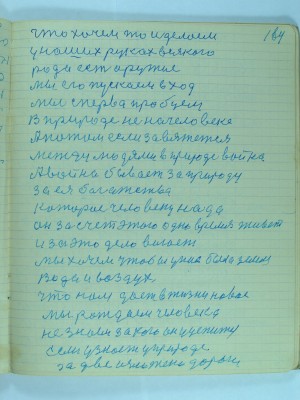 что хочем то и делаем
184
у наших руках всякого
рода ест оружие
мы его пускаем в ход
мы сперва пробуем
в природе не на человеке
А потом если завяжется
между людями в природе война
А война бывает за природу
за ея богатства
которое человеку нада
он за счет этого одно время живет
и за это дело воюет
мы хочем чтобы у нас была земля
вода и воздух
что нам дает в жизни новое
мы рождаем человека
не знаем за кого он
если узнает у природе
за две
дороги